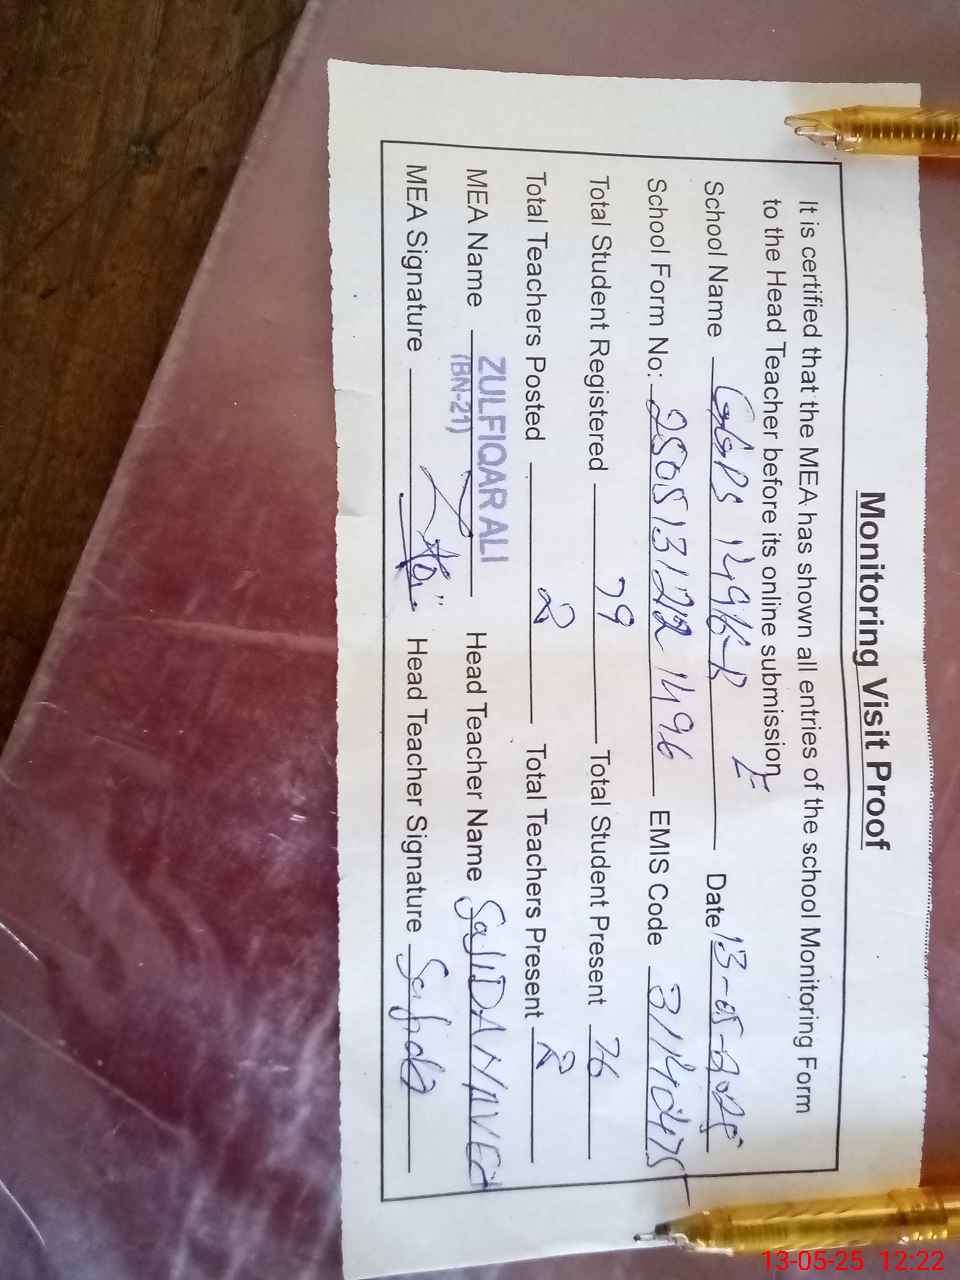 Monitoring Visit Proof
It is certified that the MEA has shown all entries of the school Monitoring Form
to the Head Teacher before its online submission
School Name GGPS Date 13-05-2025
School Form No: 2505131222 1496 EMIS Code 31140475
Total Student Registered 79 Total Student Present 76
Total Teachers Posted 2 Total Teachers Present 2
MEA Name ZULFIQAR ALI Head Teacher Name SAJIDA NAVED
(BN-21)
MEA Signature Head Teacher Signature Sajida
13-05-25 12:22